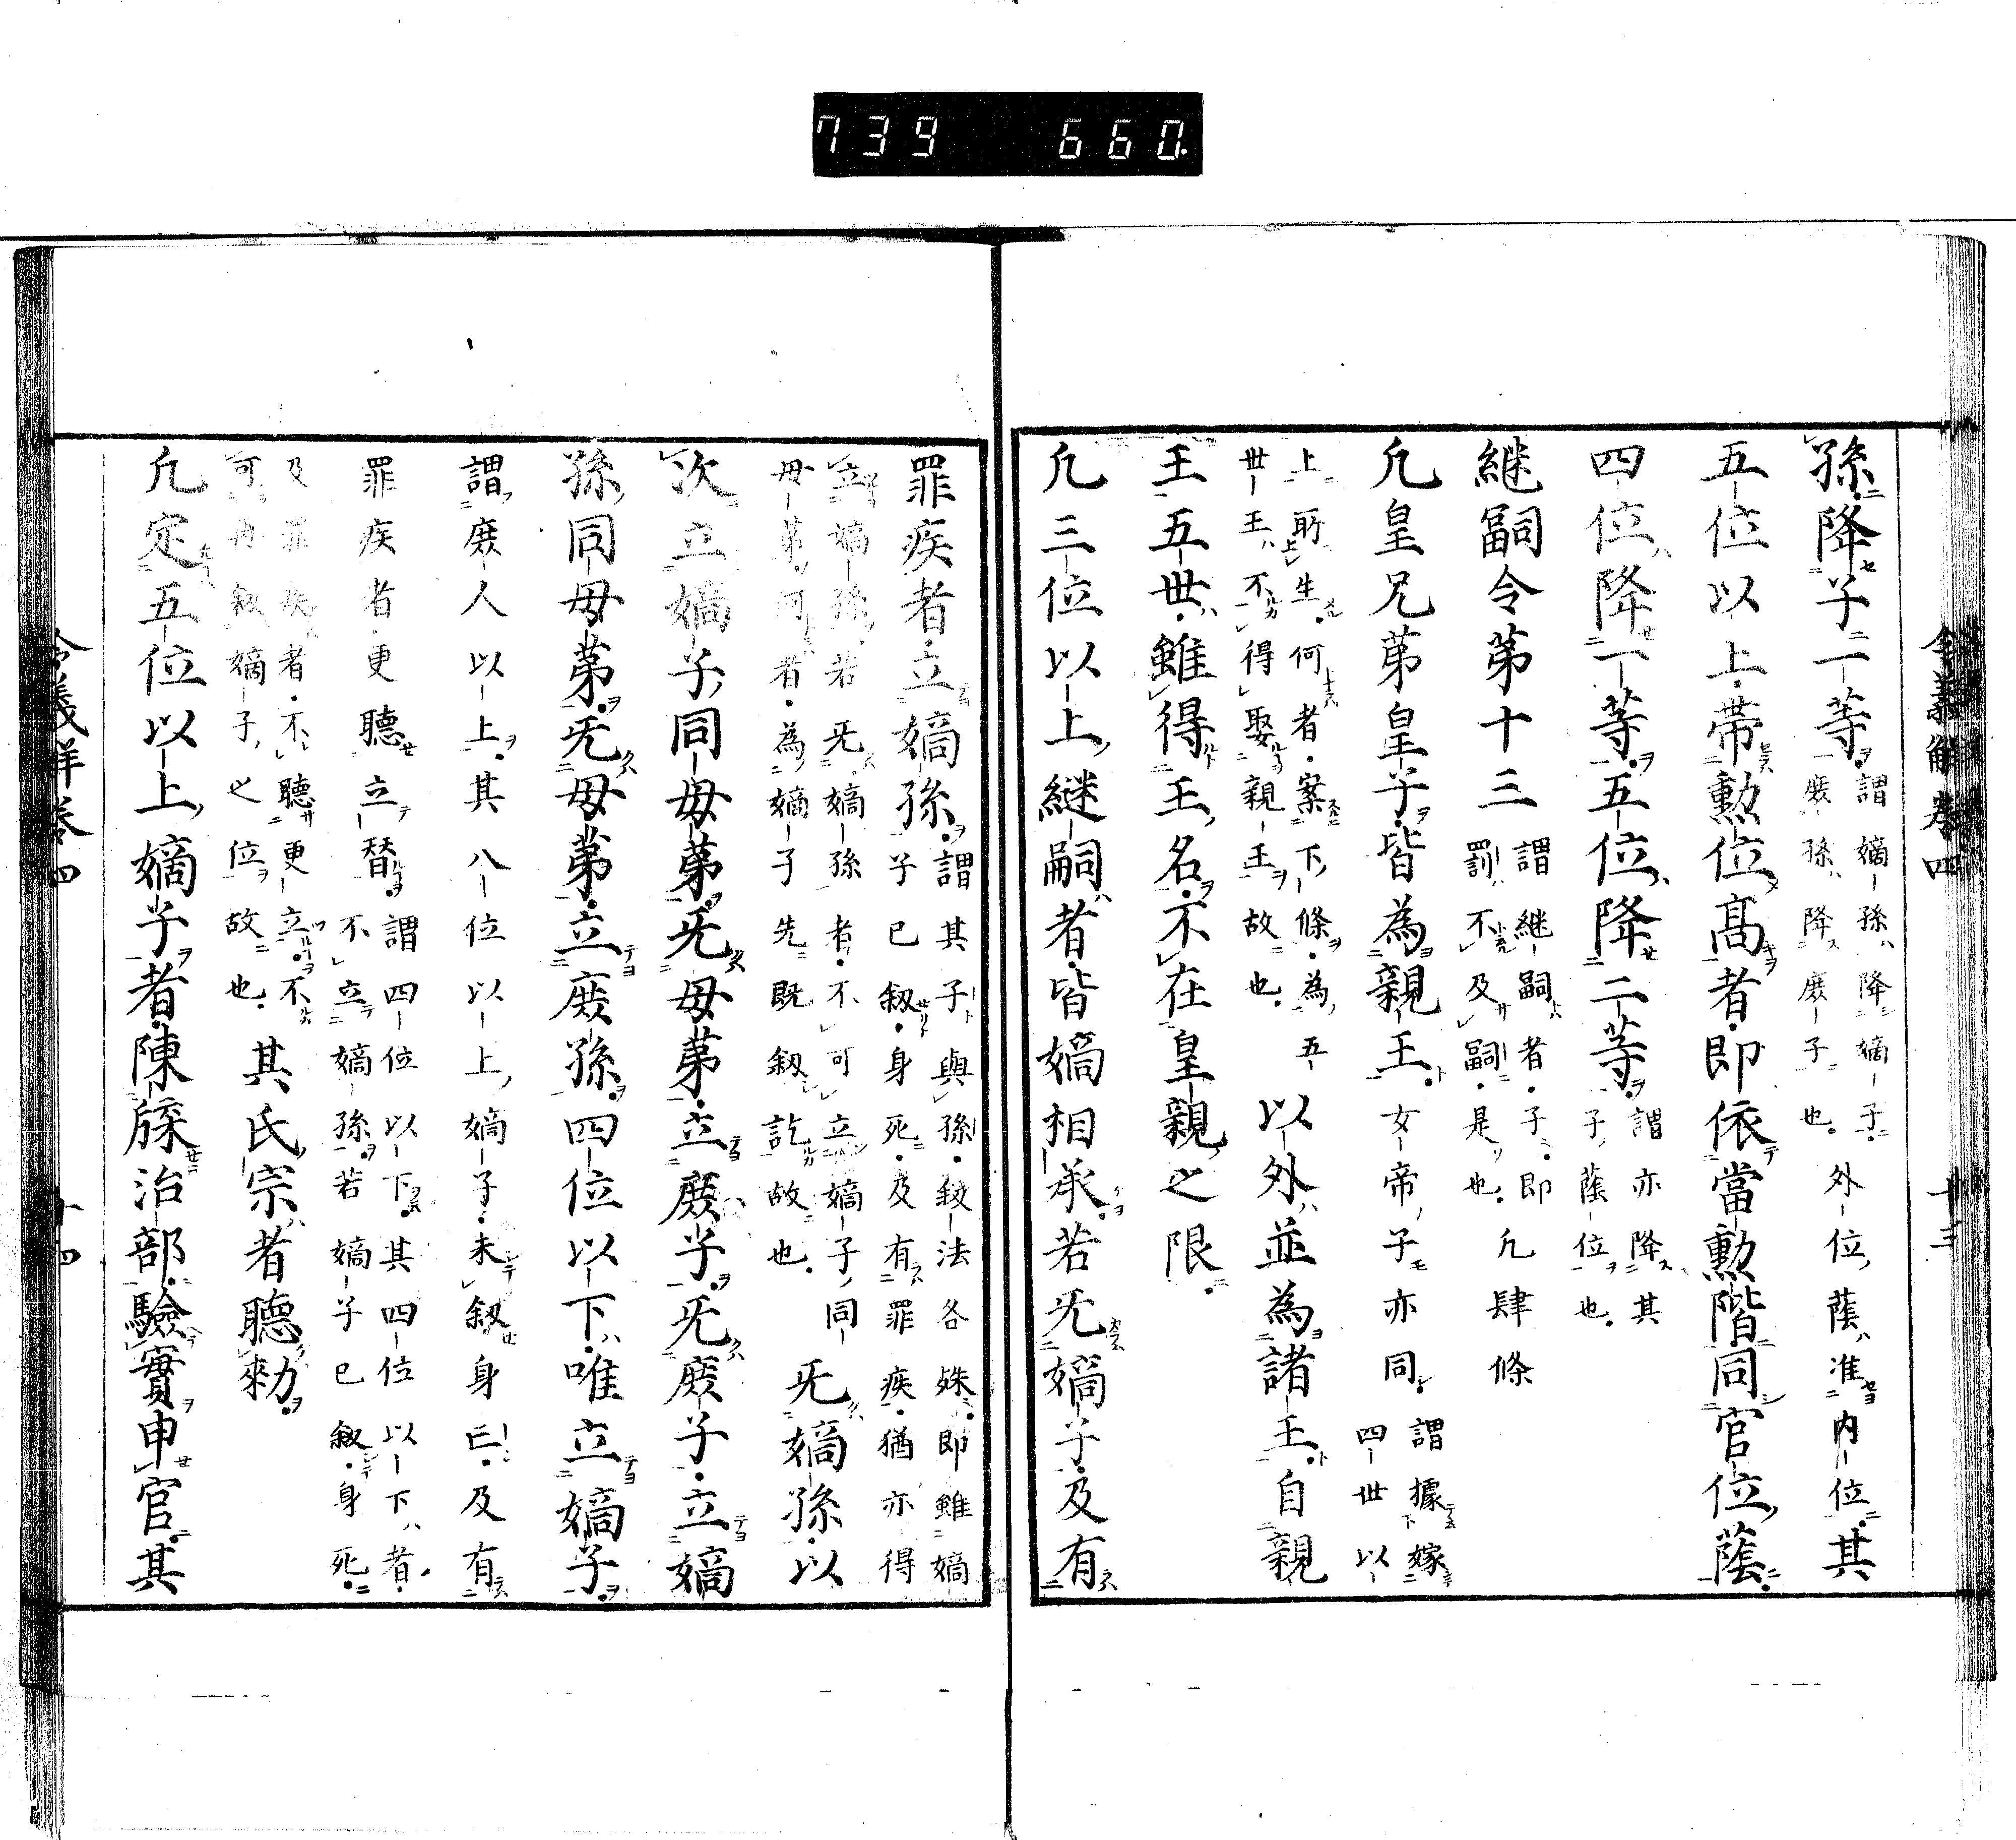 739 660
令義解卷四 十三
孫降子一等謂嫡孫降嫡子庶孫降庶子也外位蔭准内位其
五位以上帶勲位髙者即依當勲階同官位蔭
四位降一等五位降二等謂亦降其子蔭位也
継嗣令第十三謂継嗣者子即罰不及嗣是也凢肆條
凢皇兄弟皇子皆為親王女帝子亦同謂據嫁四世以
上所生何者案下條為五世王不得娶親王故也以外並為諸王自親
王五世雖得王名不在皇親之限
凢三位以上継嗣者皆嫡相承若旡嫡子及有
罪疾者立嫡孫謂其子與孫叙法各殊即雖嫡子已叙身死及有罪疾猶亦得
立嫡孫若旡嫡孫者不可立嫡子同母弟何者為嫡子先既叙訖故也旡嫡孫以
次立嫡子同母弟旡母弟立庶子旡庶子立嫡
孫同母弟旡母弟立庶孫四位以下唯立嫡子
謂庶人以上其八位以上嫡子未叙身亡及有
罪疾者更聽立替謂四位以下其四位以下者不立嫡孫若嫡子已叙身死
及罪疾者不聽更立不可再叙嫡子之位故也其氏宗者聽勑
凢定五位以上嫡子者陳牒治部驗實申官其
令義解卷四 十四